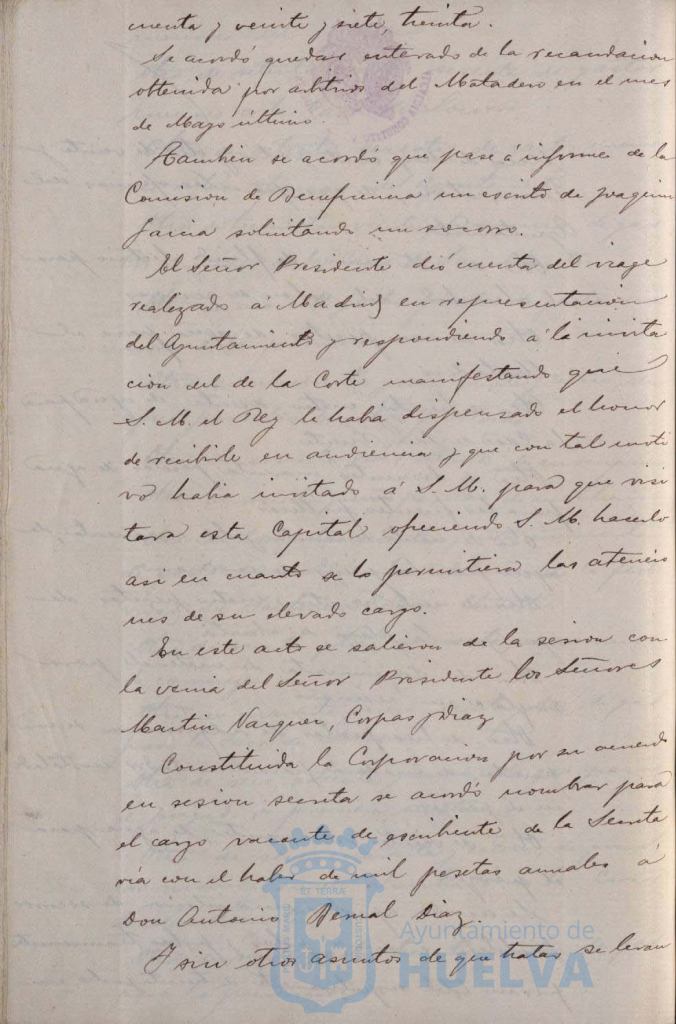 cuenta y veinte y siete, treinta.
Se acordó quedar enterado de la recaudacion
obtenida por arbitrios del Matadero en el mes
de Mayo último.
Tambien se acordó que pase á informe de la
Comision de Beneficencia un escrito de Joaquin
Garcia solicitando un socorro.
El Señor Presidente dió cuenta del viage
realizado á Madrid en representacion
del Ayuntamiento y respondiendo á la invita
cion del de la Corte manifestando que
S. M. el Rey le habia dispensado el honor
de recibirle en audiencia y que con tal moti
vo habia invitado á S. M. para que visi
tara esta Capital ofreciendo S. M. hacerlo
asi en cuanto se lo permitiera las atencio
nes de su elevado cargo.
En este acto se salieron de la sesion con
la venia del Señor Presidente los Señores
Martin Vazquez, Corpas y Diaz
Constituida la Corporacion por su acuerdo
en sesion secreta se acordó nombrar para
el cargo vacante de escribiente de la Secreta
ría con el haber de mil pesetas anuales á
Don Antonio Bernal Diaz.
Y sin otros asuntos de que tratar se levan
ET TERRA
Ayuntamiento de
HUELVA